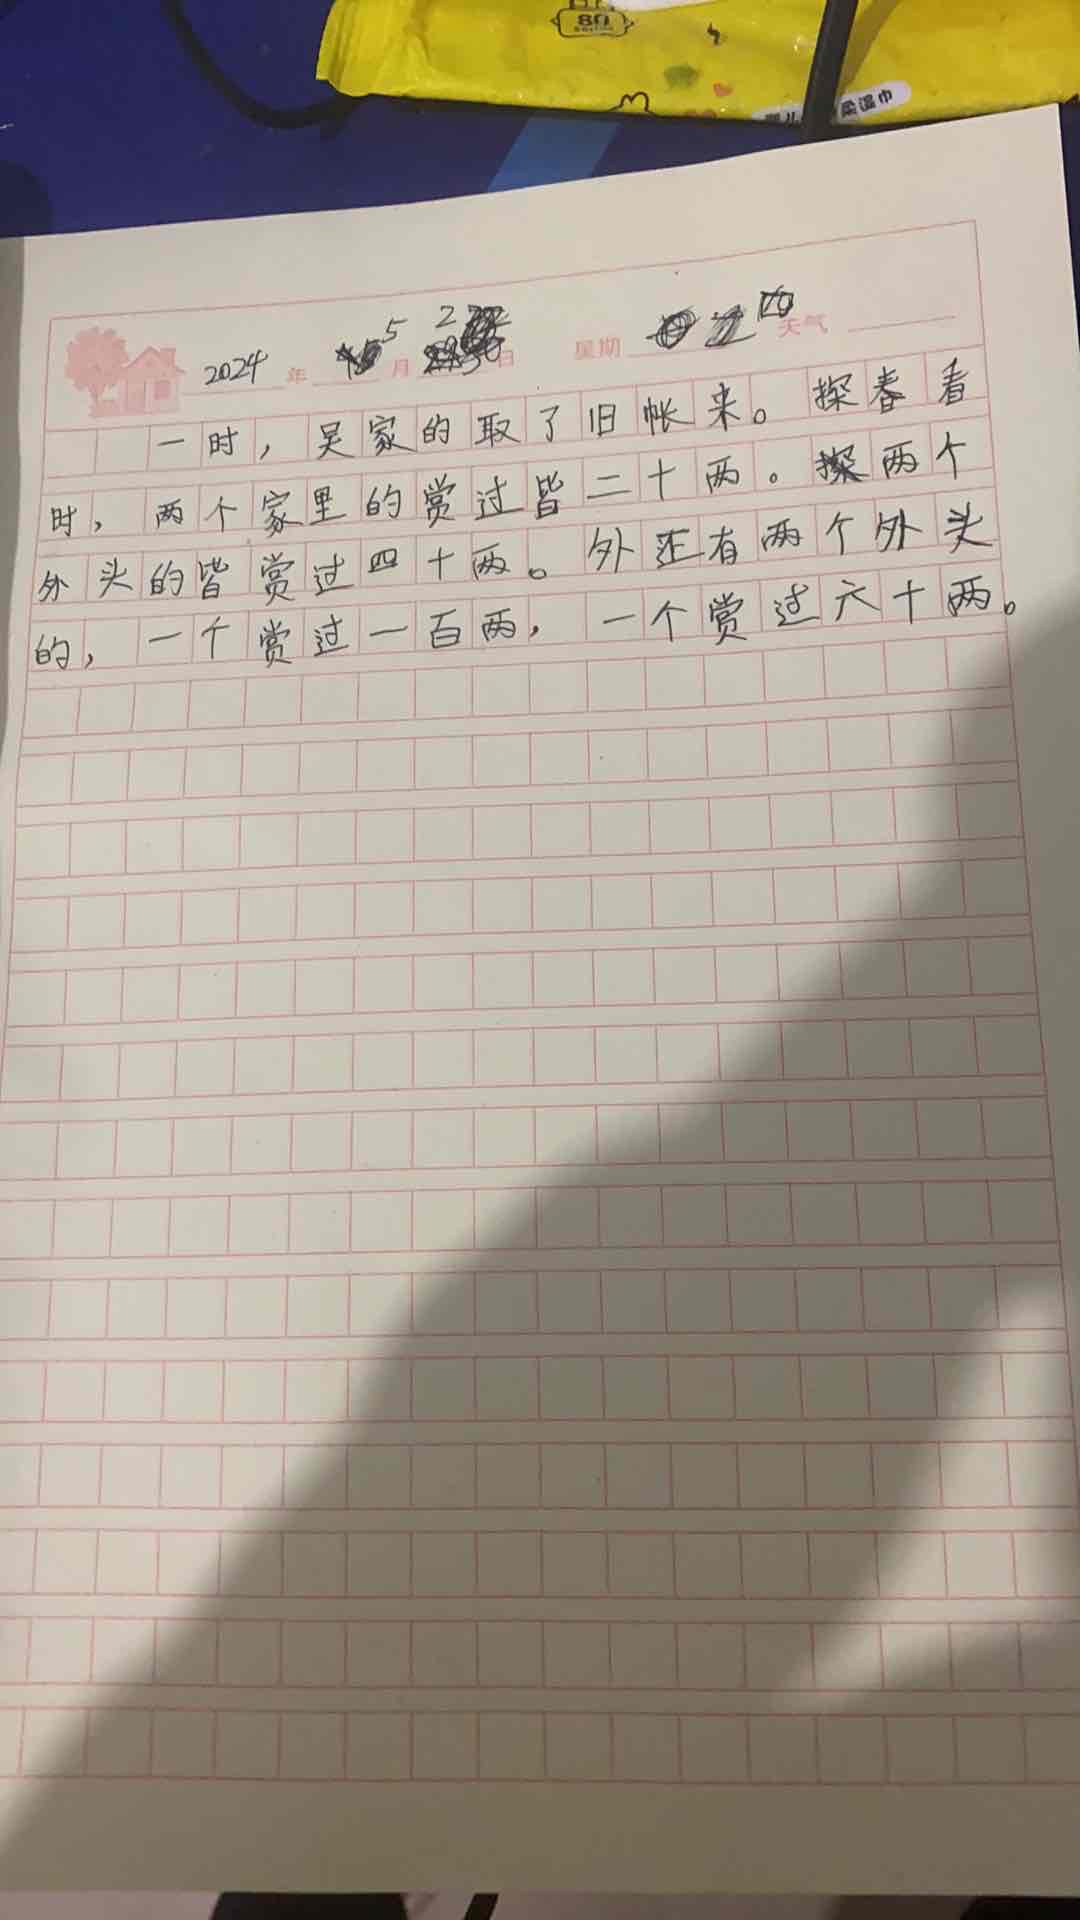 80
柔湿巾
2024 年 5 月 2 日 星期 四 天气
一时，吴家的取了旧帐来。探春看
时，两个家里的赏过皆二十两。两个
外头的皆赏过四十两。外还有两个外头
的，一个赏过一百两，一个赏过六十两。